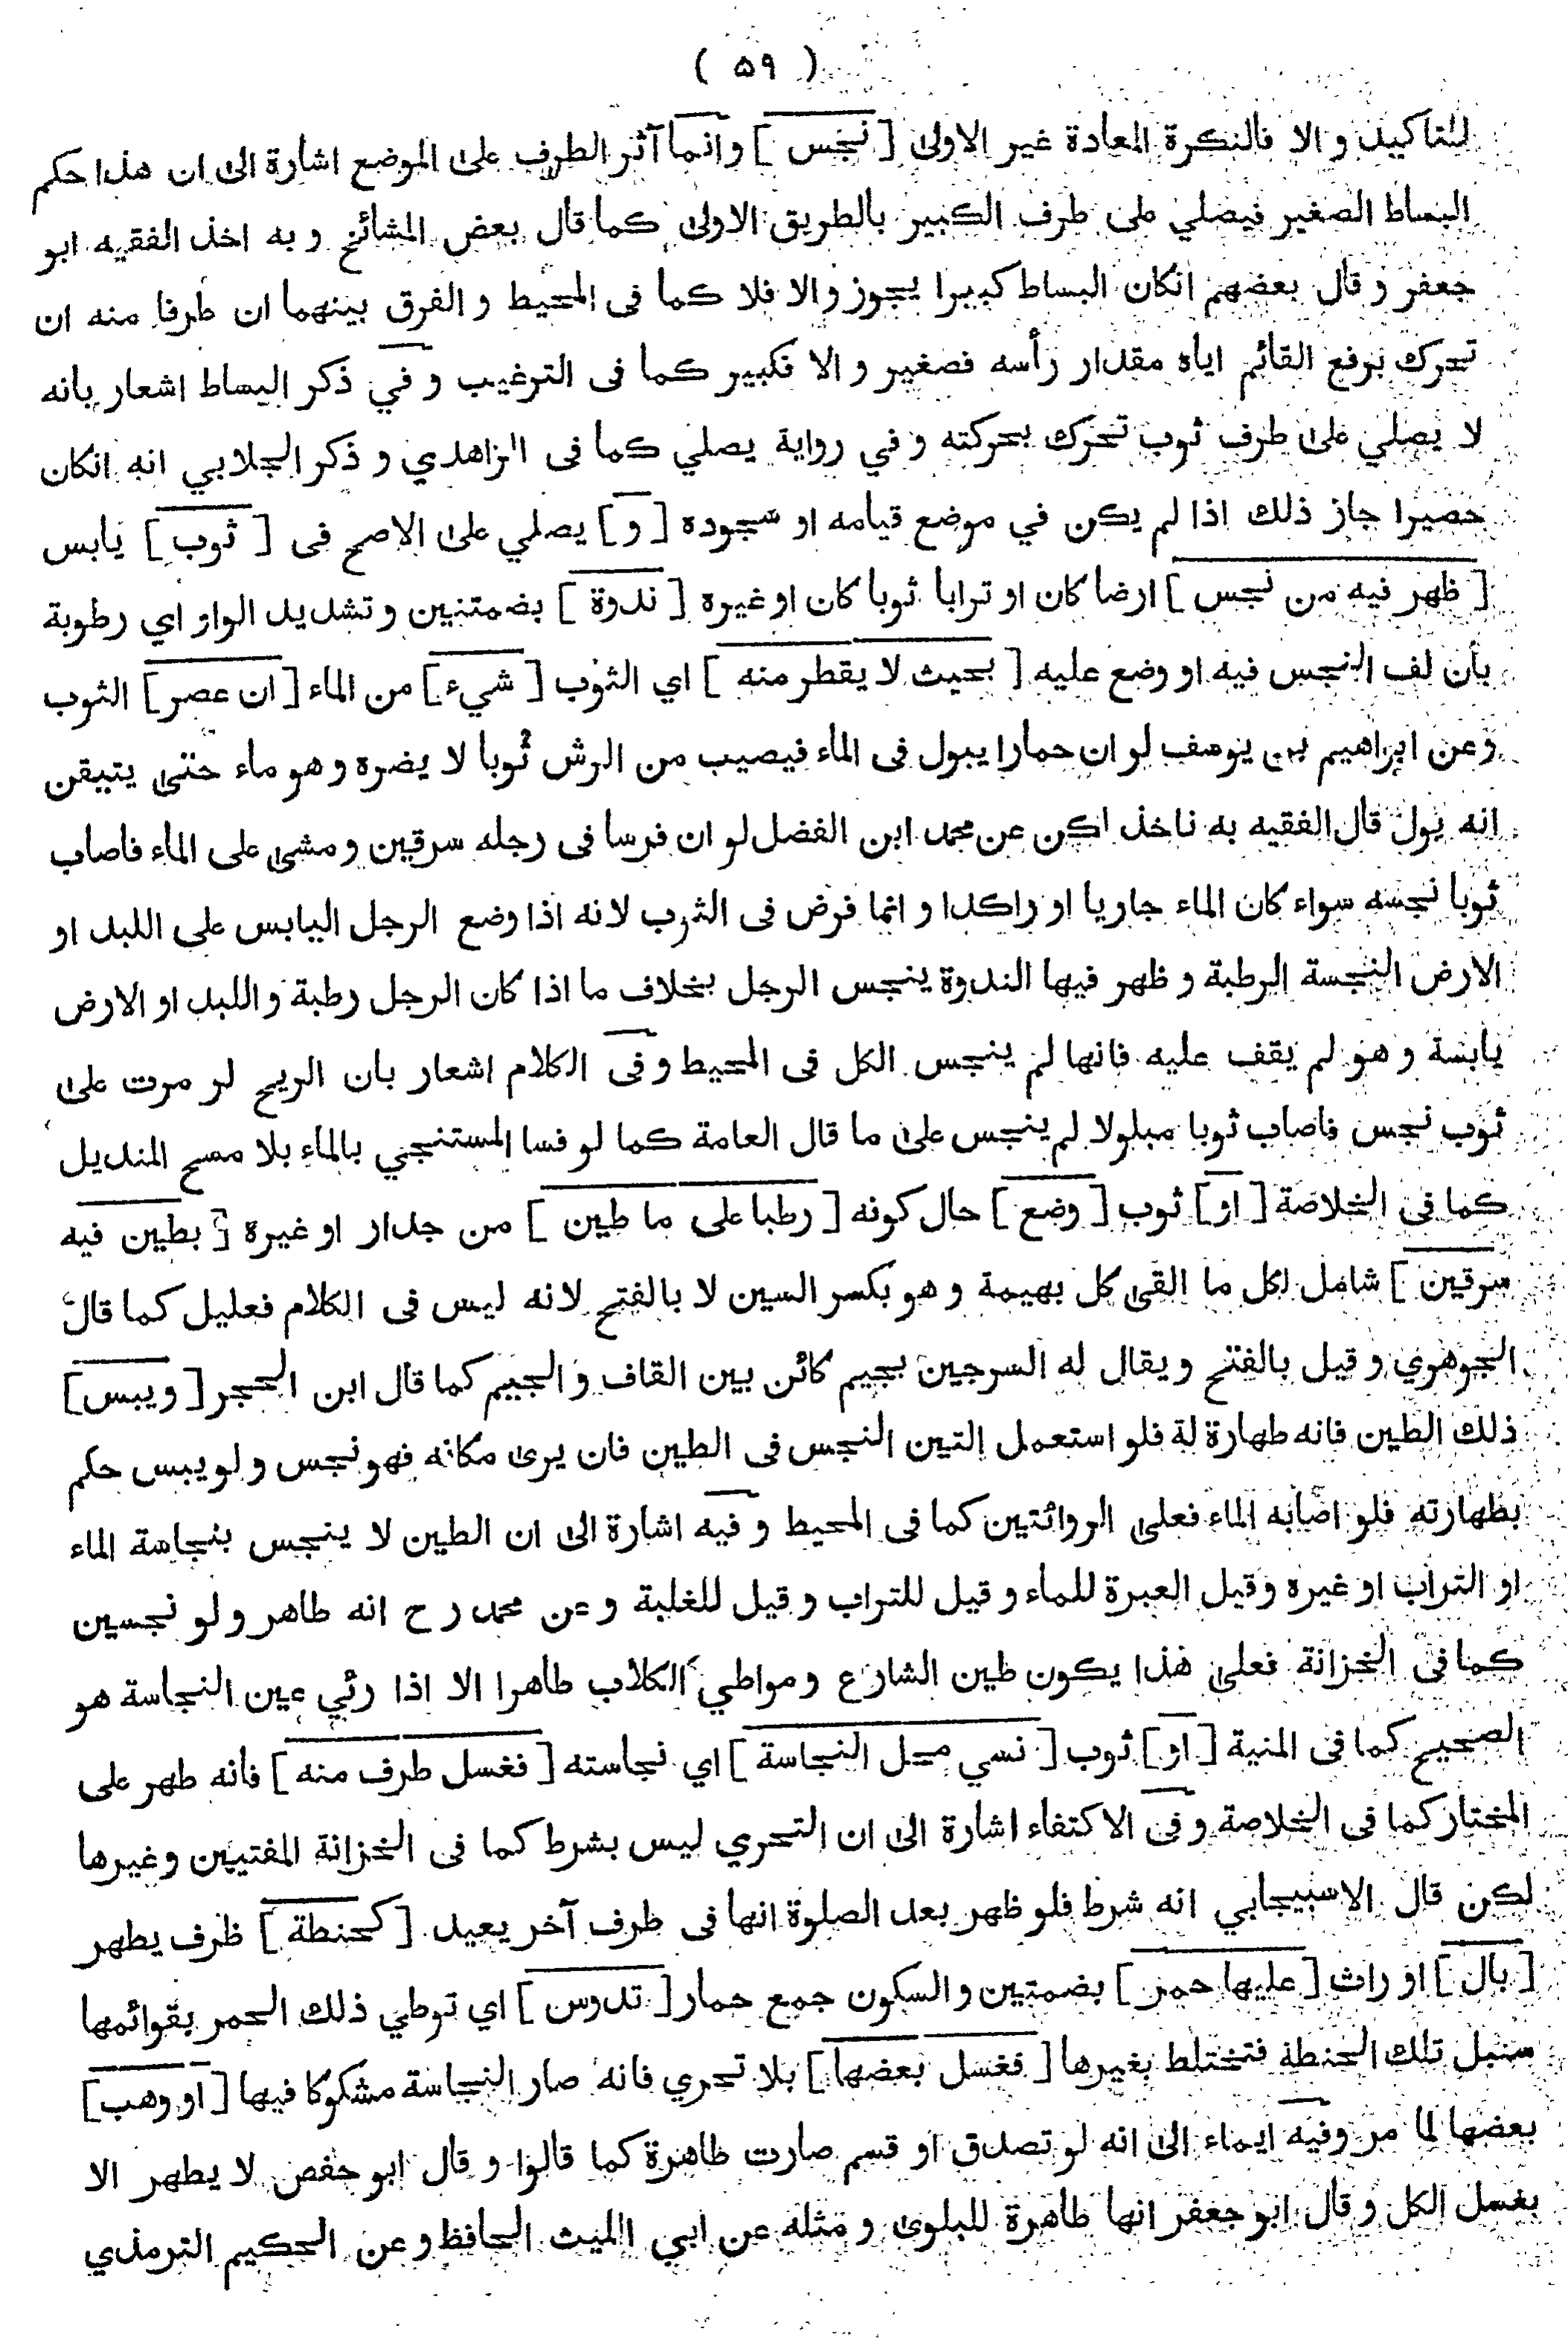 ( ۵۹ )
للتاكيد و الا فالنكرة المعادة غير الاولى [ نجس ] وانما آثر الطرف على الموضع اشارة الى ان هذا حكم
البساط الصغير فيصلي على طرف الكبير بالطريق الاولى كما قال بعض المشائخ و به اخذ الفقيه ابو
جعفر و قال بعضهم انكان البساط كبيرا يجوز والا فلا كما فى المحيط و الفرق بينهما ان طرفا منه ان
تحرك برفع القائم اياه مقدار رأسه فصغير و الا فكبير كما فى الترغيب و في ذكر البساط اشعار بانه
لا يصلي على طرف ثوب تحرك بحركته و في رواية يصلي كما فى الزاهدي و ذكر الجلابي انه انكان
حصيرا جاز ذلك اذا لم يكن في موضع قيامه او سجوده [ و ] يصلي على الاصح فى [ ثوب ] يابس
[ ظهر فيه من نجس ] ارضا كان او ترابا ثوبا كان او غيره [ ندوة ] بضمتين و تشديد الواو اي رطوبة
بأن لف النجس فيه او وضع عليه [ بحيث لا يقطر منه ] اي الثوب [ شيء ] من الماء [ ان عصر ] الثوب
وعن ابراهيم بن يوسف لو ان حمارا يبول فى الماء فيصيب من الرش ثوبا لا يضره و هو ماء حتى يتيقن
انه بول قال الفقيه به ناخذ لكن عن محمد ابن الفضل لو ان فرسا فى رجله سرقين و مشى على الماء فاصاب
ثوبا نجسه سواء كان الماء جاريا او راكدا و انما فرض فى الثوب لانه اذا وضع الرجل اليابس على اللبد او
الارض النجسة الرطبة و ظهر فيها الندوة ينجس الرجل بخلاف ما اذا كان الرجل رطبة و اللبد او الارض
يابسة و هو لم يقف عليه فانها لم ينجس الكل فى المحيط و فى الكلام اشعار بان الريح لو مرت على
ثوب نجس فاصاب ثوبا مبلولا لم ينجس على ما قال العامة كما لو فسا المستنجي بالماء بلا مسح المنديل
كما فى الخلاصة [ او ] ثوب [ وضع ] حال كونه [ رطبا على ما طين ] من جدار او غيره [ بطين فيه
سرقين ] شامل لكل ما القى كل بهيمة و هو بكسر السين لا بالفتح لانه ليس فى الكلام فعليل كما قال
الجوهري و قيل بالفتح و يقال له السرجين بجيم كائن بين القاف و الجيم كما قال ابن الحجر [ و يبس ]
ذلك الطين فانه طهارة لة فلو استعمل التبن النجس فى الطين فان يرى مكانه فهو نجس و لو يبس حكم
بطهارته فلو اصابه الماء فعلى الروائتين كما فى المحيط و فيه اشارة الى ان الطين لا ينجس بنجاسة الماء
او التراب او غيره وقيل العبرة للماء و قيل للتراب و قيل للغلبة و عن محمد ر ح انه طاهر و لو نجسين
كما فى الخزانة فعلى هذا يكون طين الشارع و مواطي الكلاب طاهرا الا اذا رئي عين النجاسة هو
الصحيح كما فى المنية [ او ] ثوب [ نسي محل النجاسة ] اي نجاسته [ فغسل طرف منه ] فانه طهر على
المختار كما فى الخلاصة و فى الاكتفاء اشارة الى ان التحري ليس بشرط كما فى الخزانة المفتيين وغيرها
لكن قال الاسبيجابي انه شرط فلو ظهر بعد الصلوة انها فى طرف آخر يعيد [ كحنطة ] ظرف يطهر
[ بال ] او راث [ عليها حمر ] بضمتين و السكون جمع حمار [ تدوس ] اي توطي ذلك الحمر بقوائمها
سنبل تلك الحنطة فتختلط بغيرها [ فغسل بعضها ] بلا تحري فانه صار النجاسة مشكوكا فيها [ او وهب ]
بعضها لما مر وفيه ايماء الى انه لو تصدق او قسم صارت طاهرة كما قالوا و قال ابو حفص لا يطهر الا
بغسل الكل و قال ابو جعفر انها طاهرة للبلوى و مثله عن ابي الليث الحافظ و عن الحكيم الترمذي